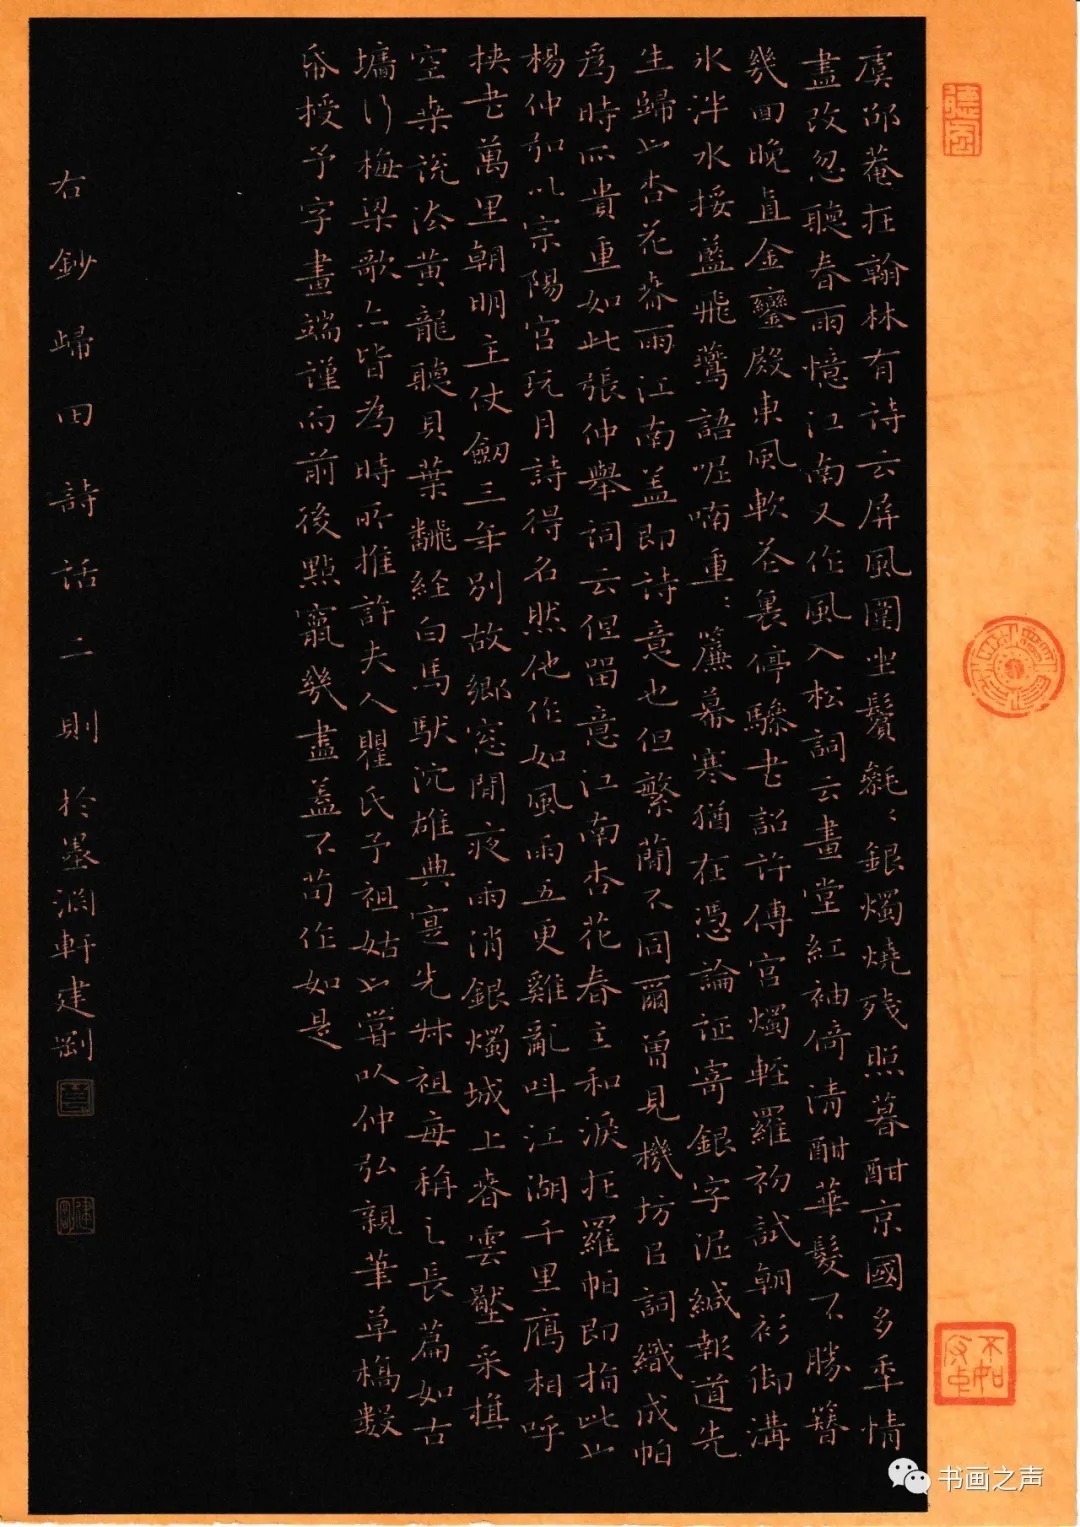 虞邵菴在翰林有詩云屏風圍坐鬢毿〻銀燭燒殘照暮酣京國多年情
盡改忽聽春雨憶江南又作風入松詞云畫堂紅袖倚清酣華髮不勝簪
幾回晚直金鑾殿東風軟花裏停驂书詔許傳宮燭輕羅初試朝衫御溝
氷泮水挼藍飛鷰語呢喃重〻簾幕寒猶在憑論証寄銀字泥緘報道先
生歸也杏花春雨江南盖即詩意也但繁蕳不同爾曾見機坊以詞織成帕
為時所貴重如此張仲舉詞云但留意江南杏花春主和淚在羅帕即指此也
楊仲弘以宗陽宮玩月詩得名然他作如風雨五更雞亂呌江湖千里鴈相呼
挟书萬里朝明主仗劒三年别故鄉窓間夜雨消銀燭城上春雲壓采旗
空桒說法黃龍聽貝葉飜経白馬馱沉雄典寔先叔祖每稱之長篇如古
墻行梅梁歌亦皆為時所推許夫人瞿氏予祖姑也嘗以仲弘親筆草槗数
帋授予字畫端謹而前後點竄幾盡蓋不苟作如是
右鈔歸田詩話二則於墨淵軒建剛
不如
书画之声